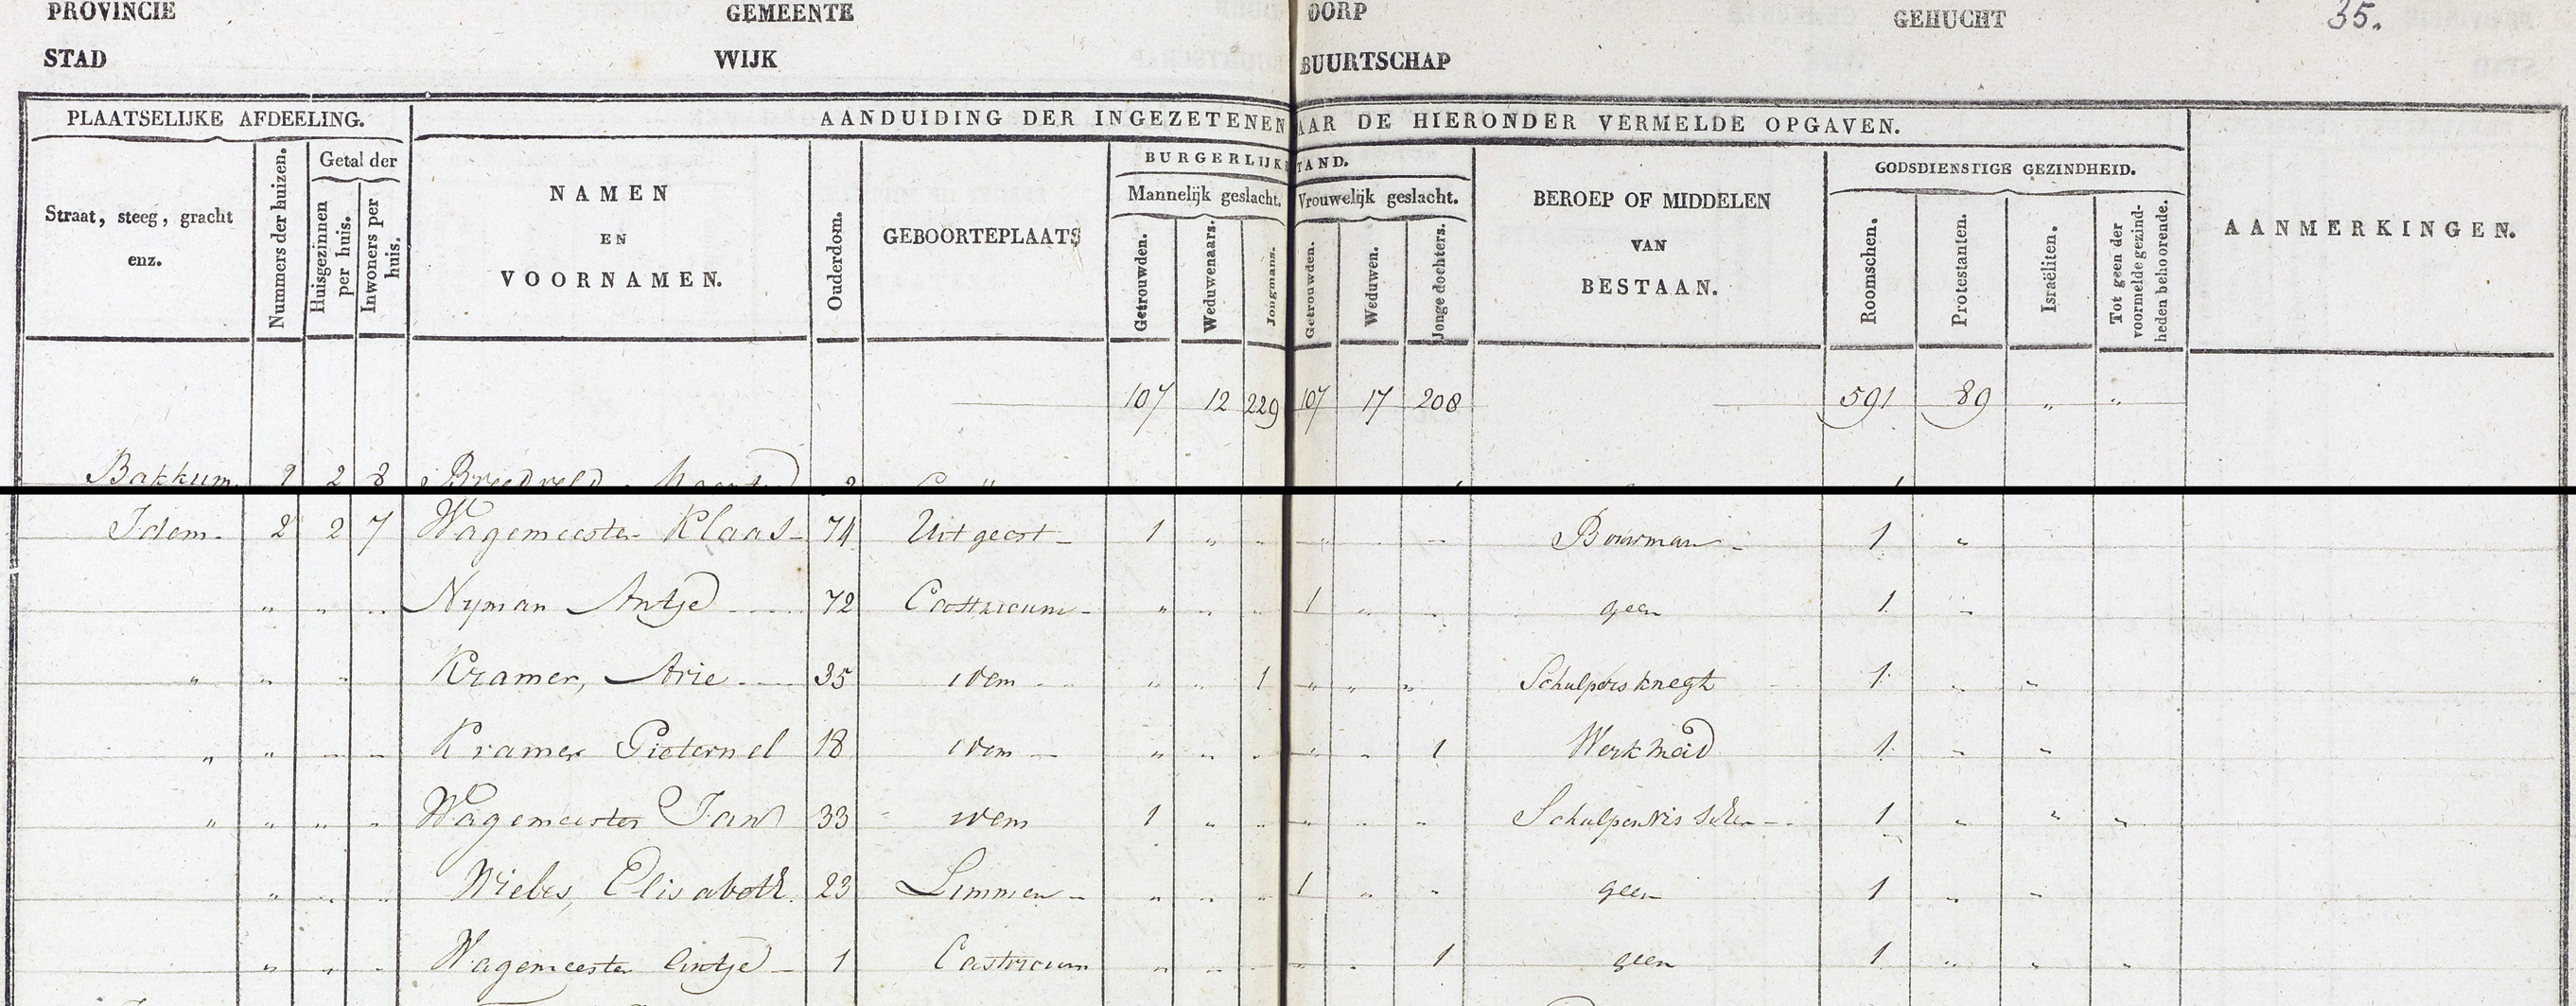 PROVINCIE GEMEENTE DORP GEHUCHT 35.
STAD WIJK BUURTSCHAP
PLAATSELIJKE AFDEELING. AANDUIDING DER INGEZETENEN AAR DE HIERONDER VERMELDE OPGAVEN.
Straat, steeg, gracht enz.
Nummers der huizen.
Getal der
Huisgezinnen per huis.
Inwoners per huis.
NAMEN
EN
VOORNAMEN.
Ouderdom.
GEBOORTEPLAATS
BURGERLIJKE TAND.
Mannelijk geslacht. Vrouwelijk geslacht.
Getrouwden. Weduwenaars. Jongmans. Getrouwden. Weduwen. Jonge dochters.
BEROEP OF MIDDELEN
VAN
BESTAAN.
GODSDIENSTIGE GEZINDHEID.
Roomschen. Protestanten. Israëliten. Tot geen der voormelde gezindheden behoorende.
AANMERKINGEN.
107 12 229 107 17 208 591 89 „ „
Bakkum. 2 8 Breedveld
Idem. 2 2 7 Wagemeester Klaas 74 Uitgeest 1 „ „ „ „ Bouwman 1 „
„ „ „ Nyman Antje 72 Castricum „ „ „ 1 „ „ geen 1 „
„ „ „ Kramer, Arie 35 idem „ „ 1 „ „ „ Schulpersknegt 1 „ „
„ „ „ „ Kramer Pieternel 18 idem „ „ „ „ „ 1 Werkmeid 1 „ „
„ „ „ „ Wagemeester Jan 33 idem 1 „ „ „ „ „ Schulpenvisscher 1 „ „ „
„ „ „ Wiebes, Elisabeth. 23 Limmen „ „ „ 1 „ „ geen 1 „ „
„ „ „ Wagemeester Antje 1 Castricum „ „ „ „ „ 1 geen 1 „ „ „